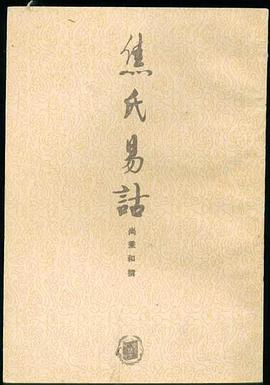 焦氏易詁
尚秉和撰